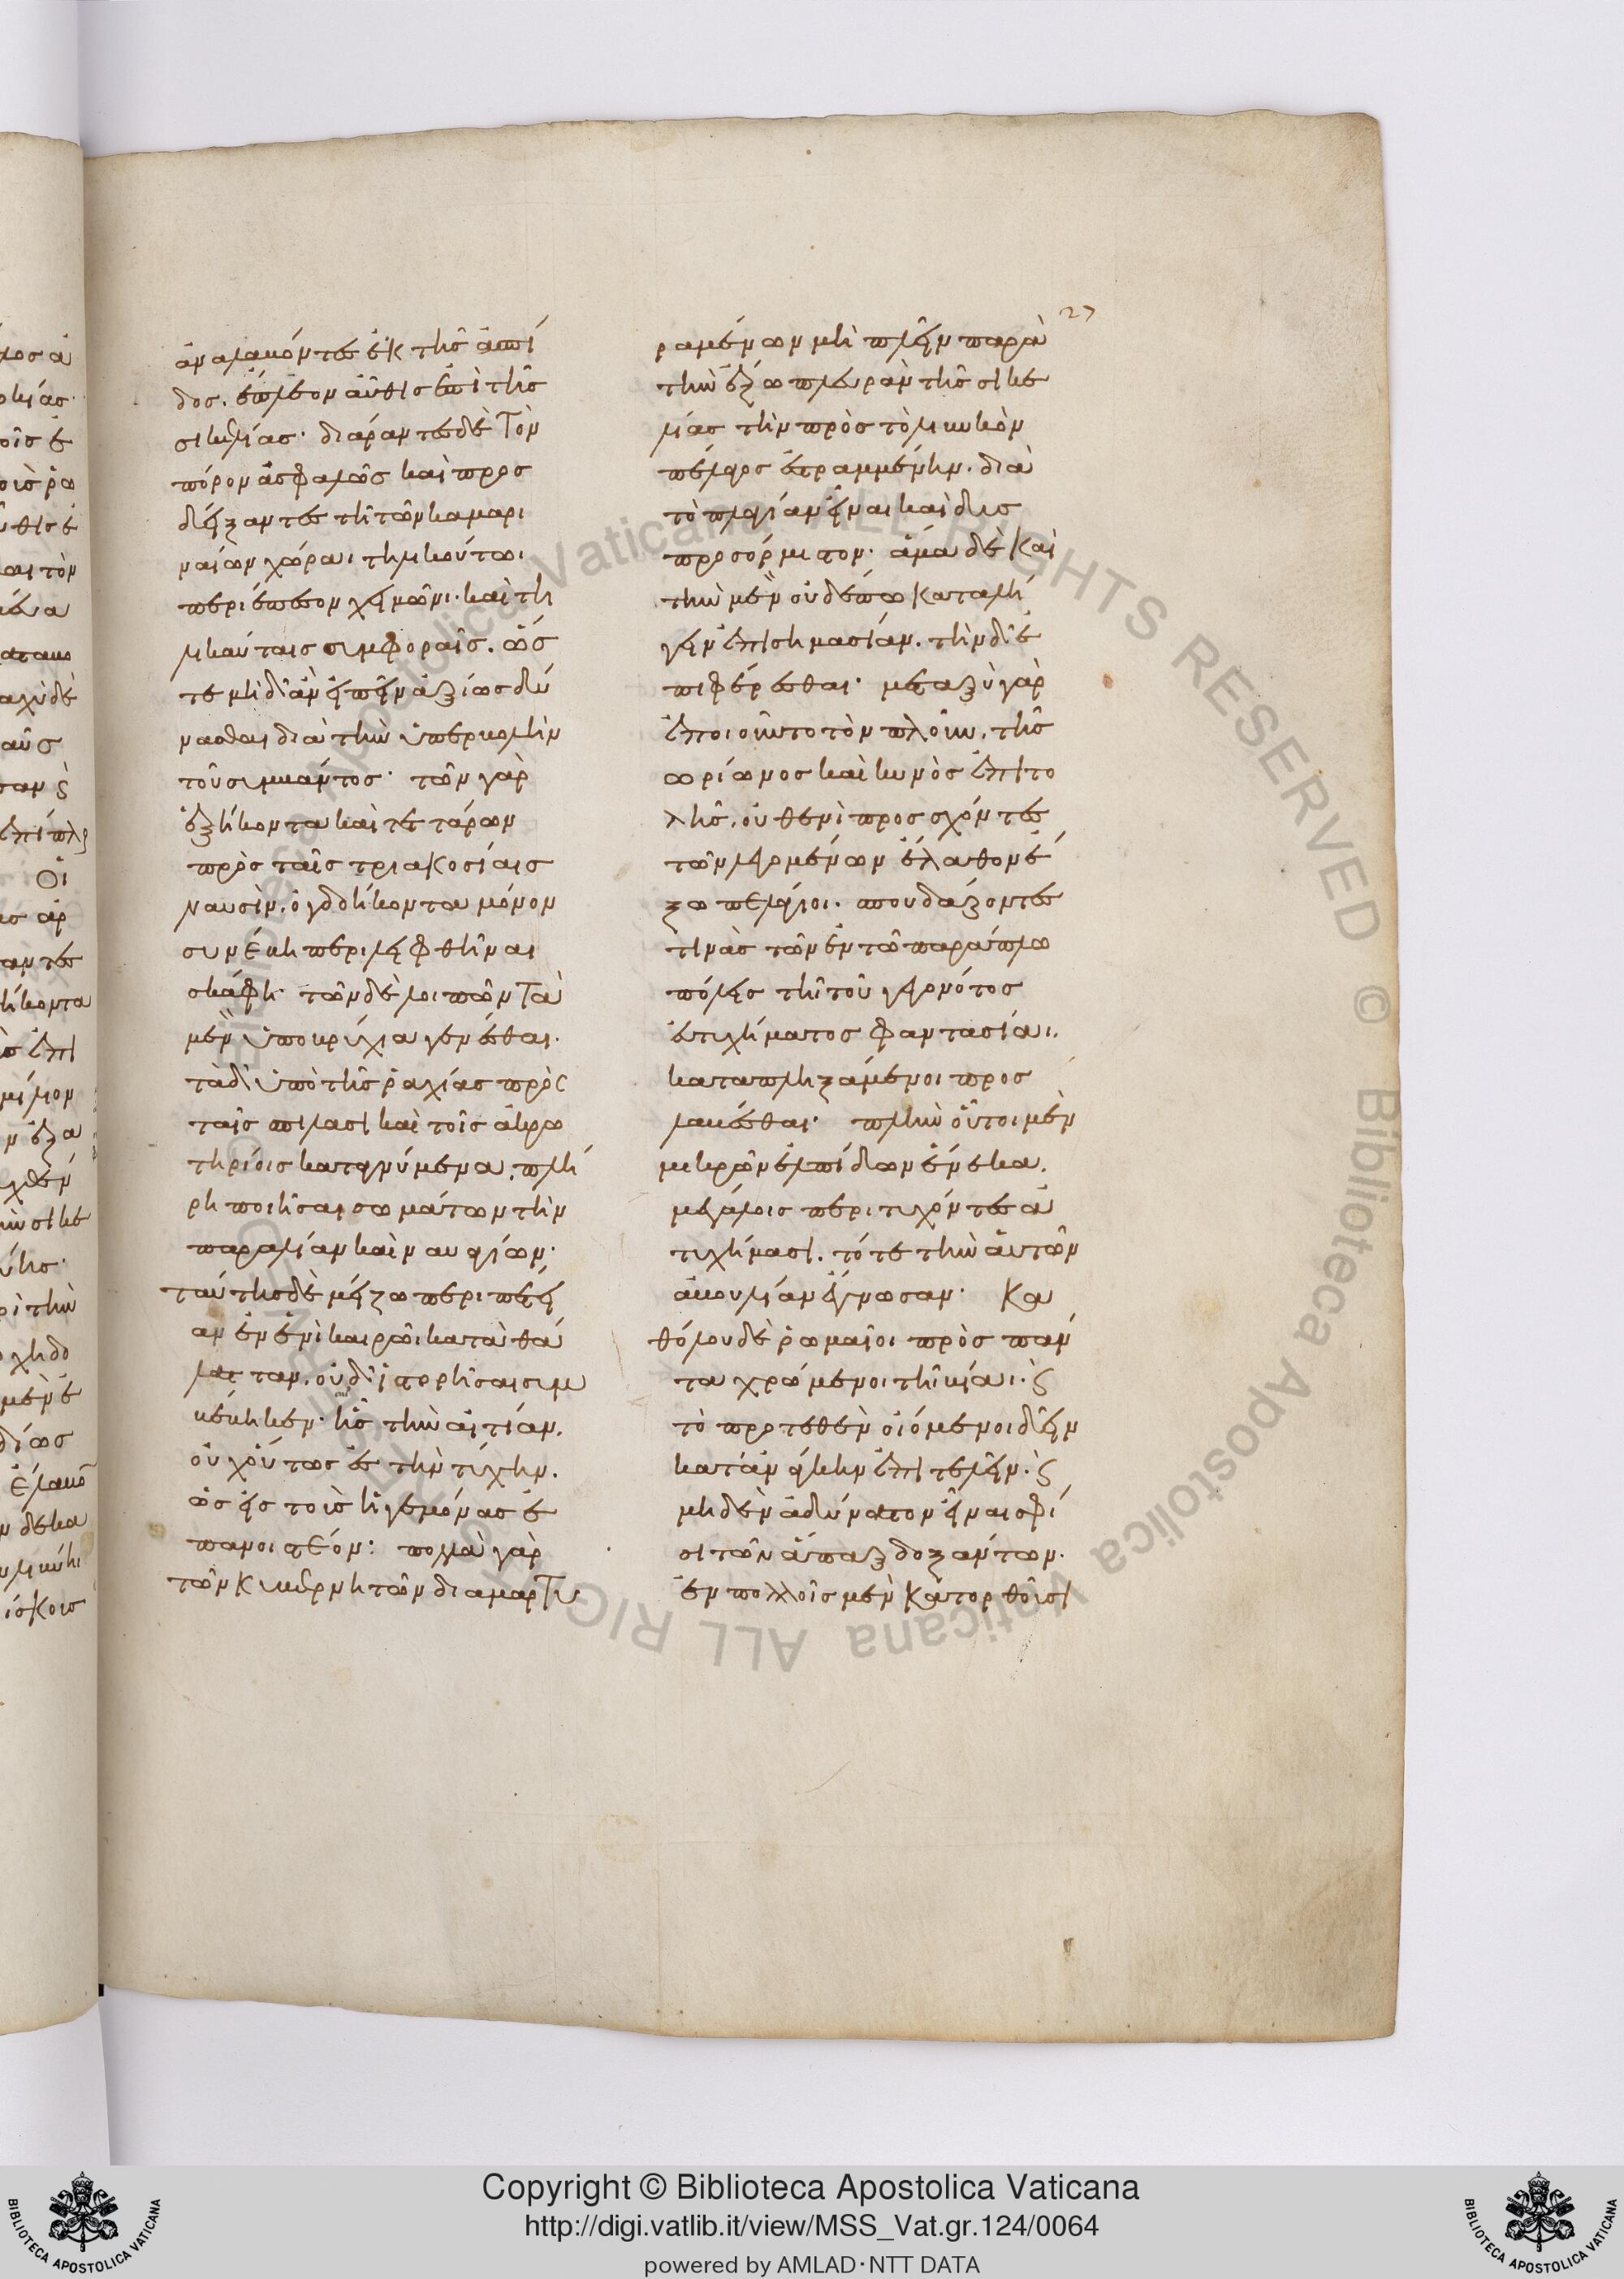 27
ἀναλαβόντες ἐκ τῆς ἀσπί
δος. ἔπλεον αὖθις ἐπὶ τῆς
σικελίας· διάραντες δὲ τὸν
πόρον ἀσφαλῶς καὶ προσ
μείξαντες τῆ τῶν καμαρι
ναίων χώραι τηλικούτωι
περιέπεσον χειμῶνι· καὶ τη
λικαύταις συμφοραῖς. ὥσ
τε μὴ δ' ἂν εἰπεῖν ἀξίως δύ
νασθαι διὰ τὴν ὑπερβολὴν
τοῦ συμβάντος· τῶν γὰρ
ἑξήκοντα καὶ τεττάρων
πρὸς ταῖς τριακοσίαις
ναυσὶν. ὀγδοήκοντα μόνον
συνέβη περιλειφθῆναι
σκάφη· τῶν δὲ λοιπῶν τὰ
μὲν ὑποβρύχια γενέσθαι.
τὰ δ' ὑπὸ τῆς ῥαχίας πρὸς
ταῖς σπιλάσι καὶ τοῖς ἀκρω
τηρίοις καταγνύμενα. πλή
ρη ποιῆσαι σωμάτων τὴν
παραλίαν καὶ ναυαγίων·
ταύτης δὲ μείζω περιπέτει
αν ἐν ἑνὶ καιρῶι κατὰ θά
λατταν. οὐδ' ἱστορῆσαι συμ
βέβηκεν· ἧς τὴν αἰτίαν.
οὐχ οὕτως ἐς τὴν τύχην.
ὡς εἰς τοὺς ἡγεμόνας ἐ
πανοιστέον: πολλὰ γὰρ
τῶν κυβερνητῶν διαμαρτυ
ραμένων μὴ πλεῖν παρὰ
τὴν ἔξω πλευρὰν τῆς σικε
λίας τὴν πρὸς τὸ λιβυκὸν
πέλαγος ἐστραμμένην. διὰ
τὸ τραχεῖαν εἶναι καὶ δυσ
προσόρμιστον· ἅμα δὲ καὶ
τὴν μὲν οὐδέπω καταλή
γειν ἐπισημασίαν. τὴν δ' ἐ
πιφέρεσθαι· μεταξὺ γὰρ
ἐποιοῦντο τὸν πλοῦν. τῆς
ὠρίωνος καὶ κυνὸς ἐπιτο
λῆς. οὐθενὶ προσσχόντες
τῶν λεγομένων ἔλαθον ἔ
ξω πελάγιοι. σπουδάζοντες
τινὰς τῶν ἐν τῶ παράπλω
πόλεις τῆ τοῦ γεγονότος
εὐτυχήματος φαντασίαι.
καταπληξάμενοι προσ
λαβέσθαι· πλὴν οὗτοι μὲν
μικρῶν ἐλπίδων ἕνεκα.
μεγάλοις περιτυχόντες ἀ
τυχήμασι. τότε τὴν αὑτῶν
ἀβουλίαν ἔγνωσαν· Κα
θόλου δὲ ῥωμαῖοι πρὸς πάν
τα χρώμενοι τῆ βίαι. ϛ
τὸ προτεθὲν οἰόμενοι δεῖν
κατ' ἀνάγκην ἐπιτελεῖν. ϛ
μηδὲν ἀδύνατον εἶναι σφί
σι τῶν ἅπαξ δοξάντων.
ἐν πολλοῖς μὲν κατορθοῦσι
Copyright © Biblioteca Apostolica Vaticana
http://digi.vatlib.it/view/MSS_Vat.gr.124/0064
powered by AMLAD·NTT DATA
BIBLIOTECA APOSTOLICA VATICANA
BIBLIOTECA APOSTOLICA VATICANA